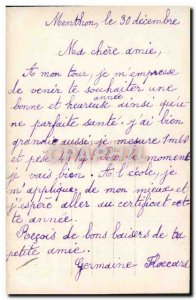 Menthon, le 30 décembre
Ma chère amie,
A mon tour, je m'empresse
de venir te souhaiter une
année
bonne et heureuse ainsi qu'u
ne parfaite santé. j'ai bien
grandie aussi, je mesure 1m60
et moment
je vais bien. A l'école, je
m'applique de mon mieux et
j'espère aller au certificat cet
te année.
Reçois de bons baisers de ta
petite amie.
Germaine